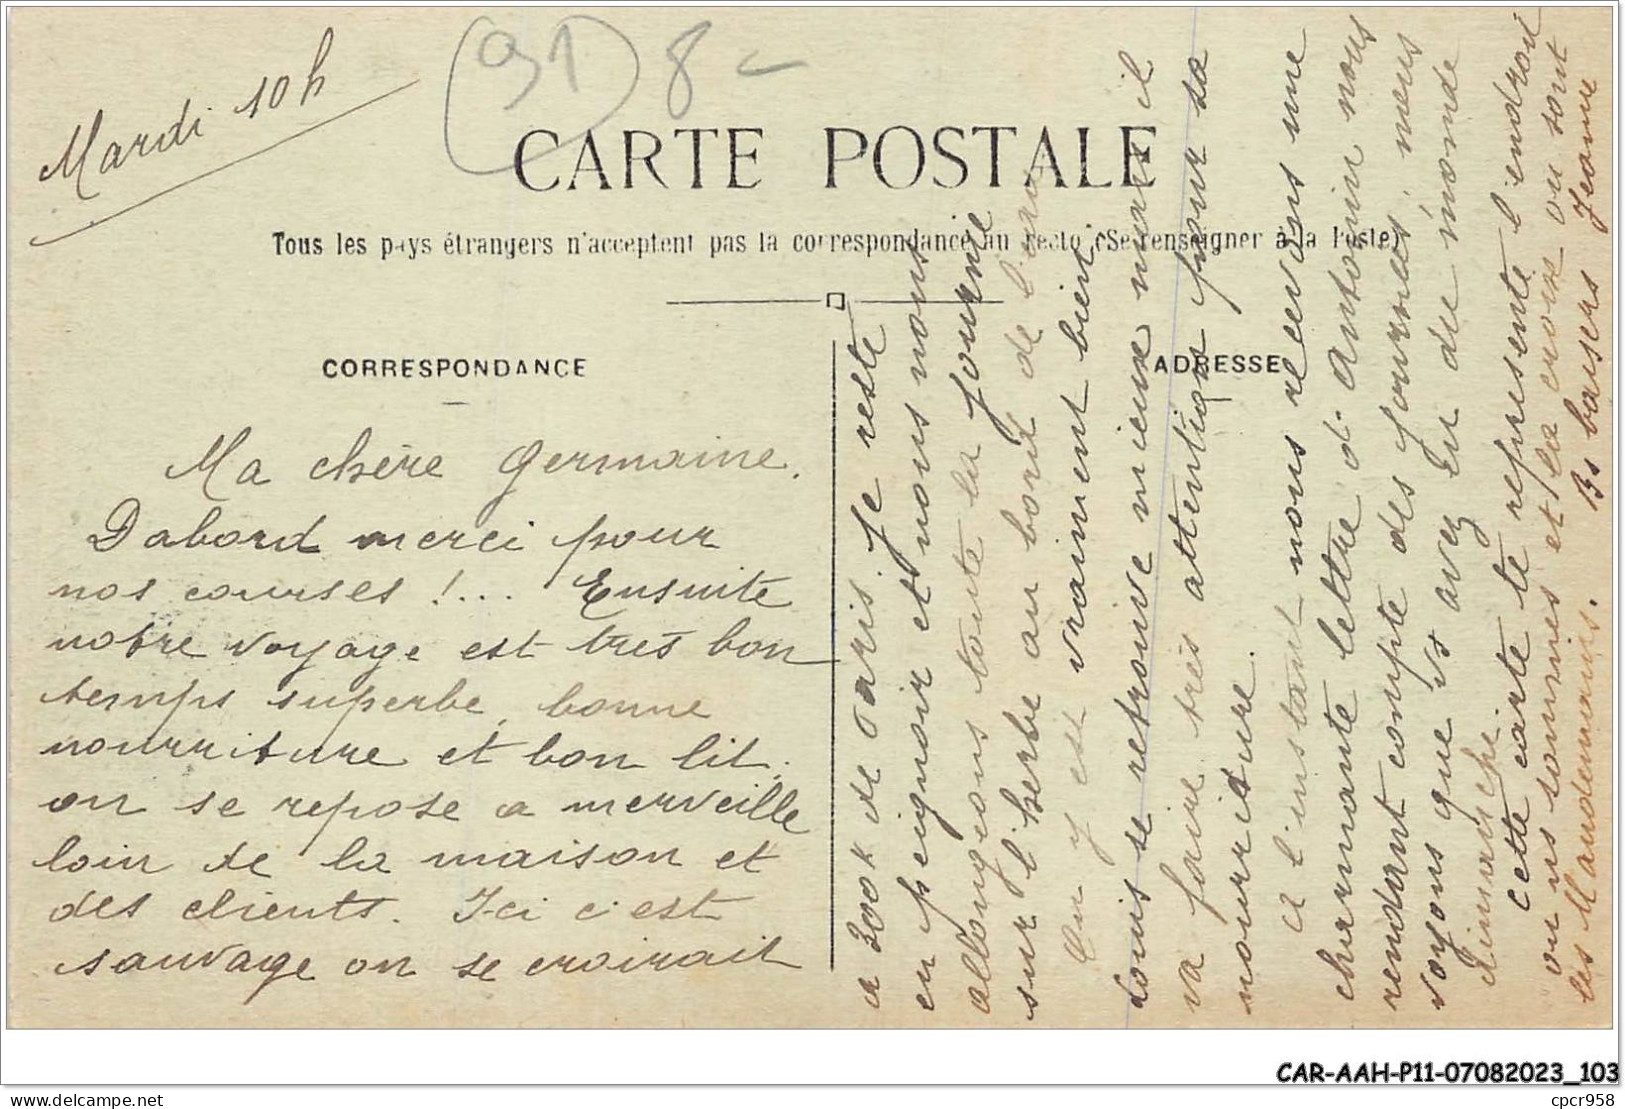 Mardi 10h
91 8-
CARTE POSTALE
Tous les pays étrangers n'acceptent pas la correspondance au recto (Se renseigner à la Poste)
CORRESPONDANCE
ADRESSE
Ma chère Germaine.
Dabord merci pour
nos courses !... Ensuite
notre voyage est très bon
temps superbe, bonne
nourriture et bon lit.
on se repose a merveille
loin de la maison et
des clients. Ici c'est
sauvage on se croirait
a 300k de Paris. Je reste
en peignoir et nous nous
allongeons toute la journée
sur l'herbe au bord de l'eau
On y est vraiment bien
Louis se retrouve mieux mais il
va faire très attention pour sa
nourriture.
a l'instant nous recevons une
charmante lettre d'Antonin nous
rendant compte des courses, nous
voyons que vs avez eu du monde
dimanche.
Cette carte te représente l'endroit
où ns sommes et la croix où sont
les Maudemains. Bs baisers Jeanne
CAR-AAH-P11-07082023_103
cpcr958